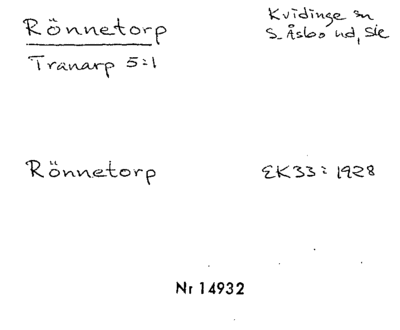 Rönnetorp
Kvidinge sn
Tranarp 5:1
S. Åsbo hd, Ske
Rönnetorp
EK33: 1928
Nr 14932